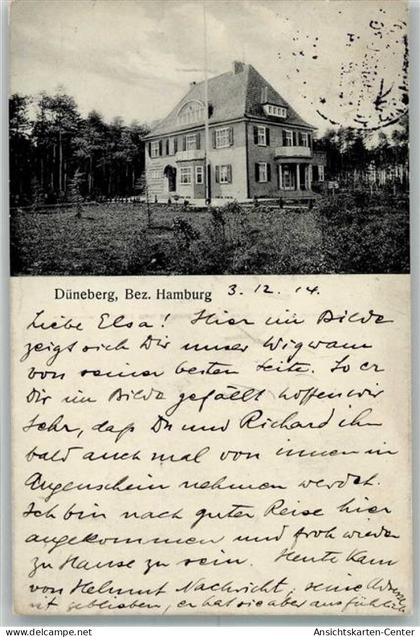 Düneberg, Bez. Hamburg 3. 12. 14.
Liebe Elsa! Hier im Bilde
zeigt sich Dir unser Wigwam
von seiner besten Seite. So er
Dir im Bilde gefällt hoffen wir
sehr, daß Du und Richard ihn
bald auch mal von innen in
Augenschein nehmen werdet.
Ich bin nach guter Reise hier
angekommen und froh wieder
zu Hause zu sein. Heute kam
von Helmut Nachricht, seine Adresse
ist geblieben, er hat sie aber ausführlich
Ansichtskarten-Center